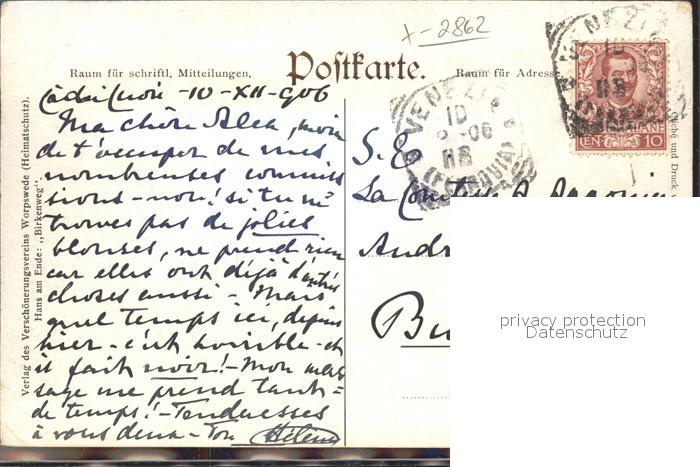 x-2862
Postkarte.
Raum für schriftl. Mitteilungen.
Raum für Adresse.
10 - XII - 906
Ma chère Alex, merci
de t'occuper de mes
nombreuses commis
sions - non! si tu ne
trouves pas de jolies
blouses, ne prend rien
car elles ont déjà d'autres
choses aussi - Mais
quel temps ici, depuis
hier - c'est horrible - et
il fait noir! - Mon mas
sage me prend tant
de temps! - Tendresses
à vous deux - Ton Hélène
S. E.
La Comtesse
Andr
Bu
VENEZIA
10
VENEZIA
10
(FERROVIA)
CEN 10
Verlag des Verschönerungsvereins Worpswede (Heimatschutz).
Hans am Ende: „Birkenweg".
und Druck
privacy protection
Datenschutz